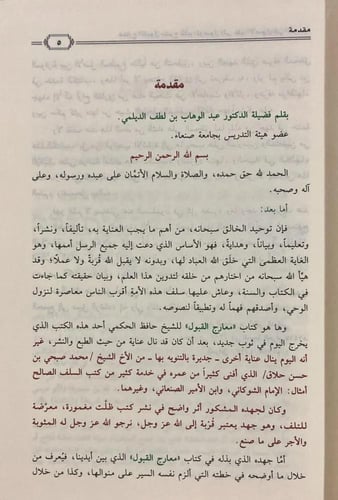 مقدمة
٥
مقدمة
بقلم فضيلة الدكتور عبد الوهاب بن لطف الديلمي.
عضو هيئة التدريس بجامعة صنعاء.
بسم الله الرحمن الرحيم
الحمد لله حق حمده، والصلاة والسلام الأتمَّان على عبده ورسوله، وعلى
آله وصحبه.
أما بعد:
فإن توحيد الخالق سبحانه، من أهم ما يجب العناية به، تأليفاً، ونشراً،
وتعليماً، وبياناً، وهداية، فهو الأساس الذي دعت إليه جميع الرسل أممها، وهو
الغاية العظمى التي خلق الله العباد لها، وبدونه لا يقبل الله قُربةً ولا عملًا؛ وقد
هيأ الله سبحانه من اختارهم من خلقه لتدوين هذا العلم، وبيان حقيقته كما جاءت
في الكتاب والسنة، وعاش عليها سلف هذه الأمة أقرب الناس معاصرة لنزول
الوحي، وأصدقهم فهماً له وتطبيقاً لنصوصه.
وها هو كتاب «معارج القبول» للشيخ حافظ الحكمي أحد هذه الكتب الذي
يخرج اليوم في ثوب جديد، بعد أن كان قد نال عناية من حيث الطبع والنشر، غير
أنه اليوم ينال عناية أخرى ـ جديرة بالتنويه بها ـ من الأخ الشيخ/ محمد صبحي بن
حسن حلاق/ الذي أفنى كثيراً من عمره في خدمة كثير من كتب السلف الصالح
أمثال: الإمام الشوكاني، وابن الأمير الصنعاني، وغيرهما.
وكان لجهده المشكور أثر واضح في نشر كتب ظلَّت مغمورة، معرَّضة
للتلف، وهو جهد يعتبر قُربة إلى الله عز وجل، نرجو الله عز وجل له المثوبة
والأجر على ما صنع.
أمَّا جهده الذي بذله في كتاب «معارج القبول» الذي بين أيدينا، فيُعرف من
خلال ما أوضحه في خطته التي ألزم نفسه السير على منوالها، وكذا من خلال